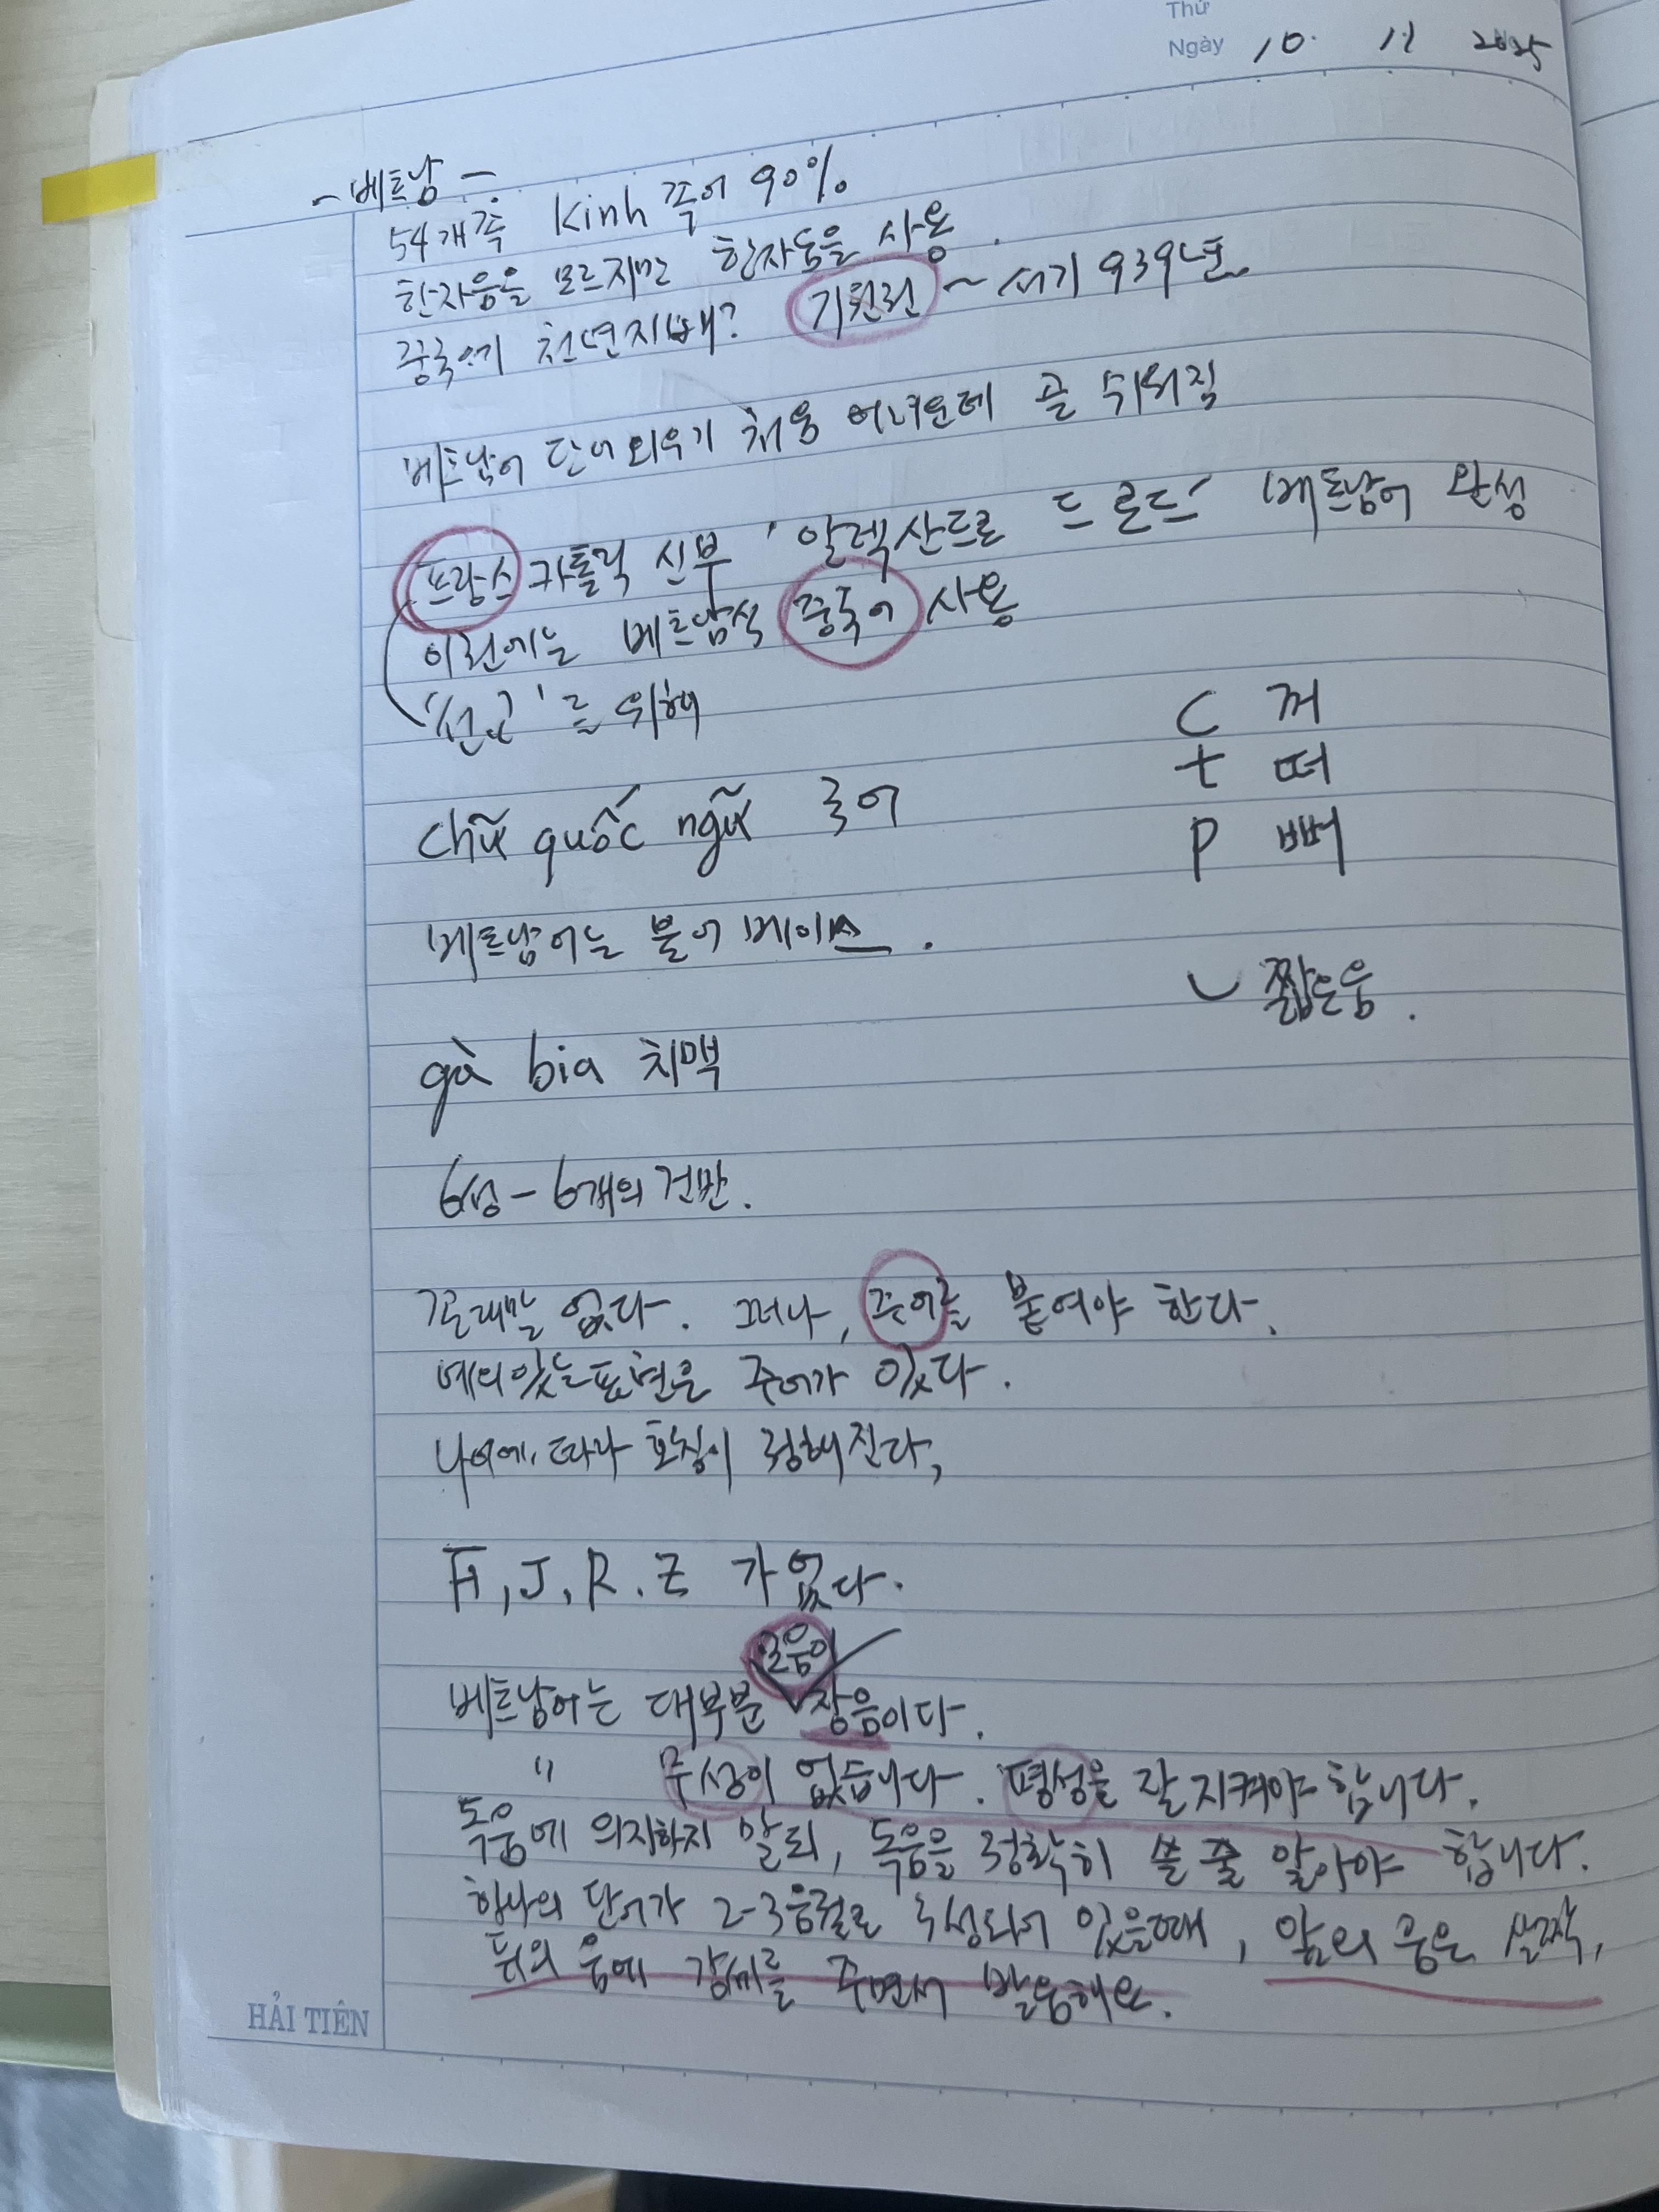 Thứ
Ngày 10. 11 2025
- 베트남 -
54개족 Kinh 족이 90%
한자음을 모르지만 한자음을 사용.
중국에 천년지배? 기원전 ~ 서기 939년
베트남어 단어 외우기 처음 어려운데 곧 쉬워짐
프랑스 카톨릭 신부 '알렉산드로 드 로드' 베트남어 완성
이전에는 베트남식 중국어 사용
'선교'를 위해
C 꺼
t 떠
P 뻐
chữ quốc ngữ 국어
베트남어는 불어 베이스.
◡ 짧은음.
gà bia 치맥
6성 - 6개의 건반.
존대말 없다. 그러나, 주어를 붙여야 한다.
예의있는표현은 주어가 있다.
나이에 따라 호칭이 정해진다,
F, J, R, Z 가 없다.
모음이
베트남어는 대부분 장음이다.
" 두성이 없습니다. 평성을 잘 지켜야 합니다.
독음에 의지하지 말되, 독음을 정확히 쓸 줄 알아야 합니다.
하나의 단어가 2-3음절로 구성되어 있을때, 앞의 음은 살짝,
뒤의 음에 강세를 주면서 발음해요.
HẢI TIẾN